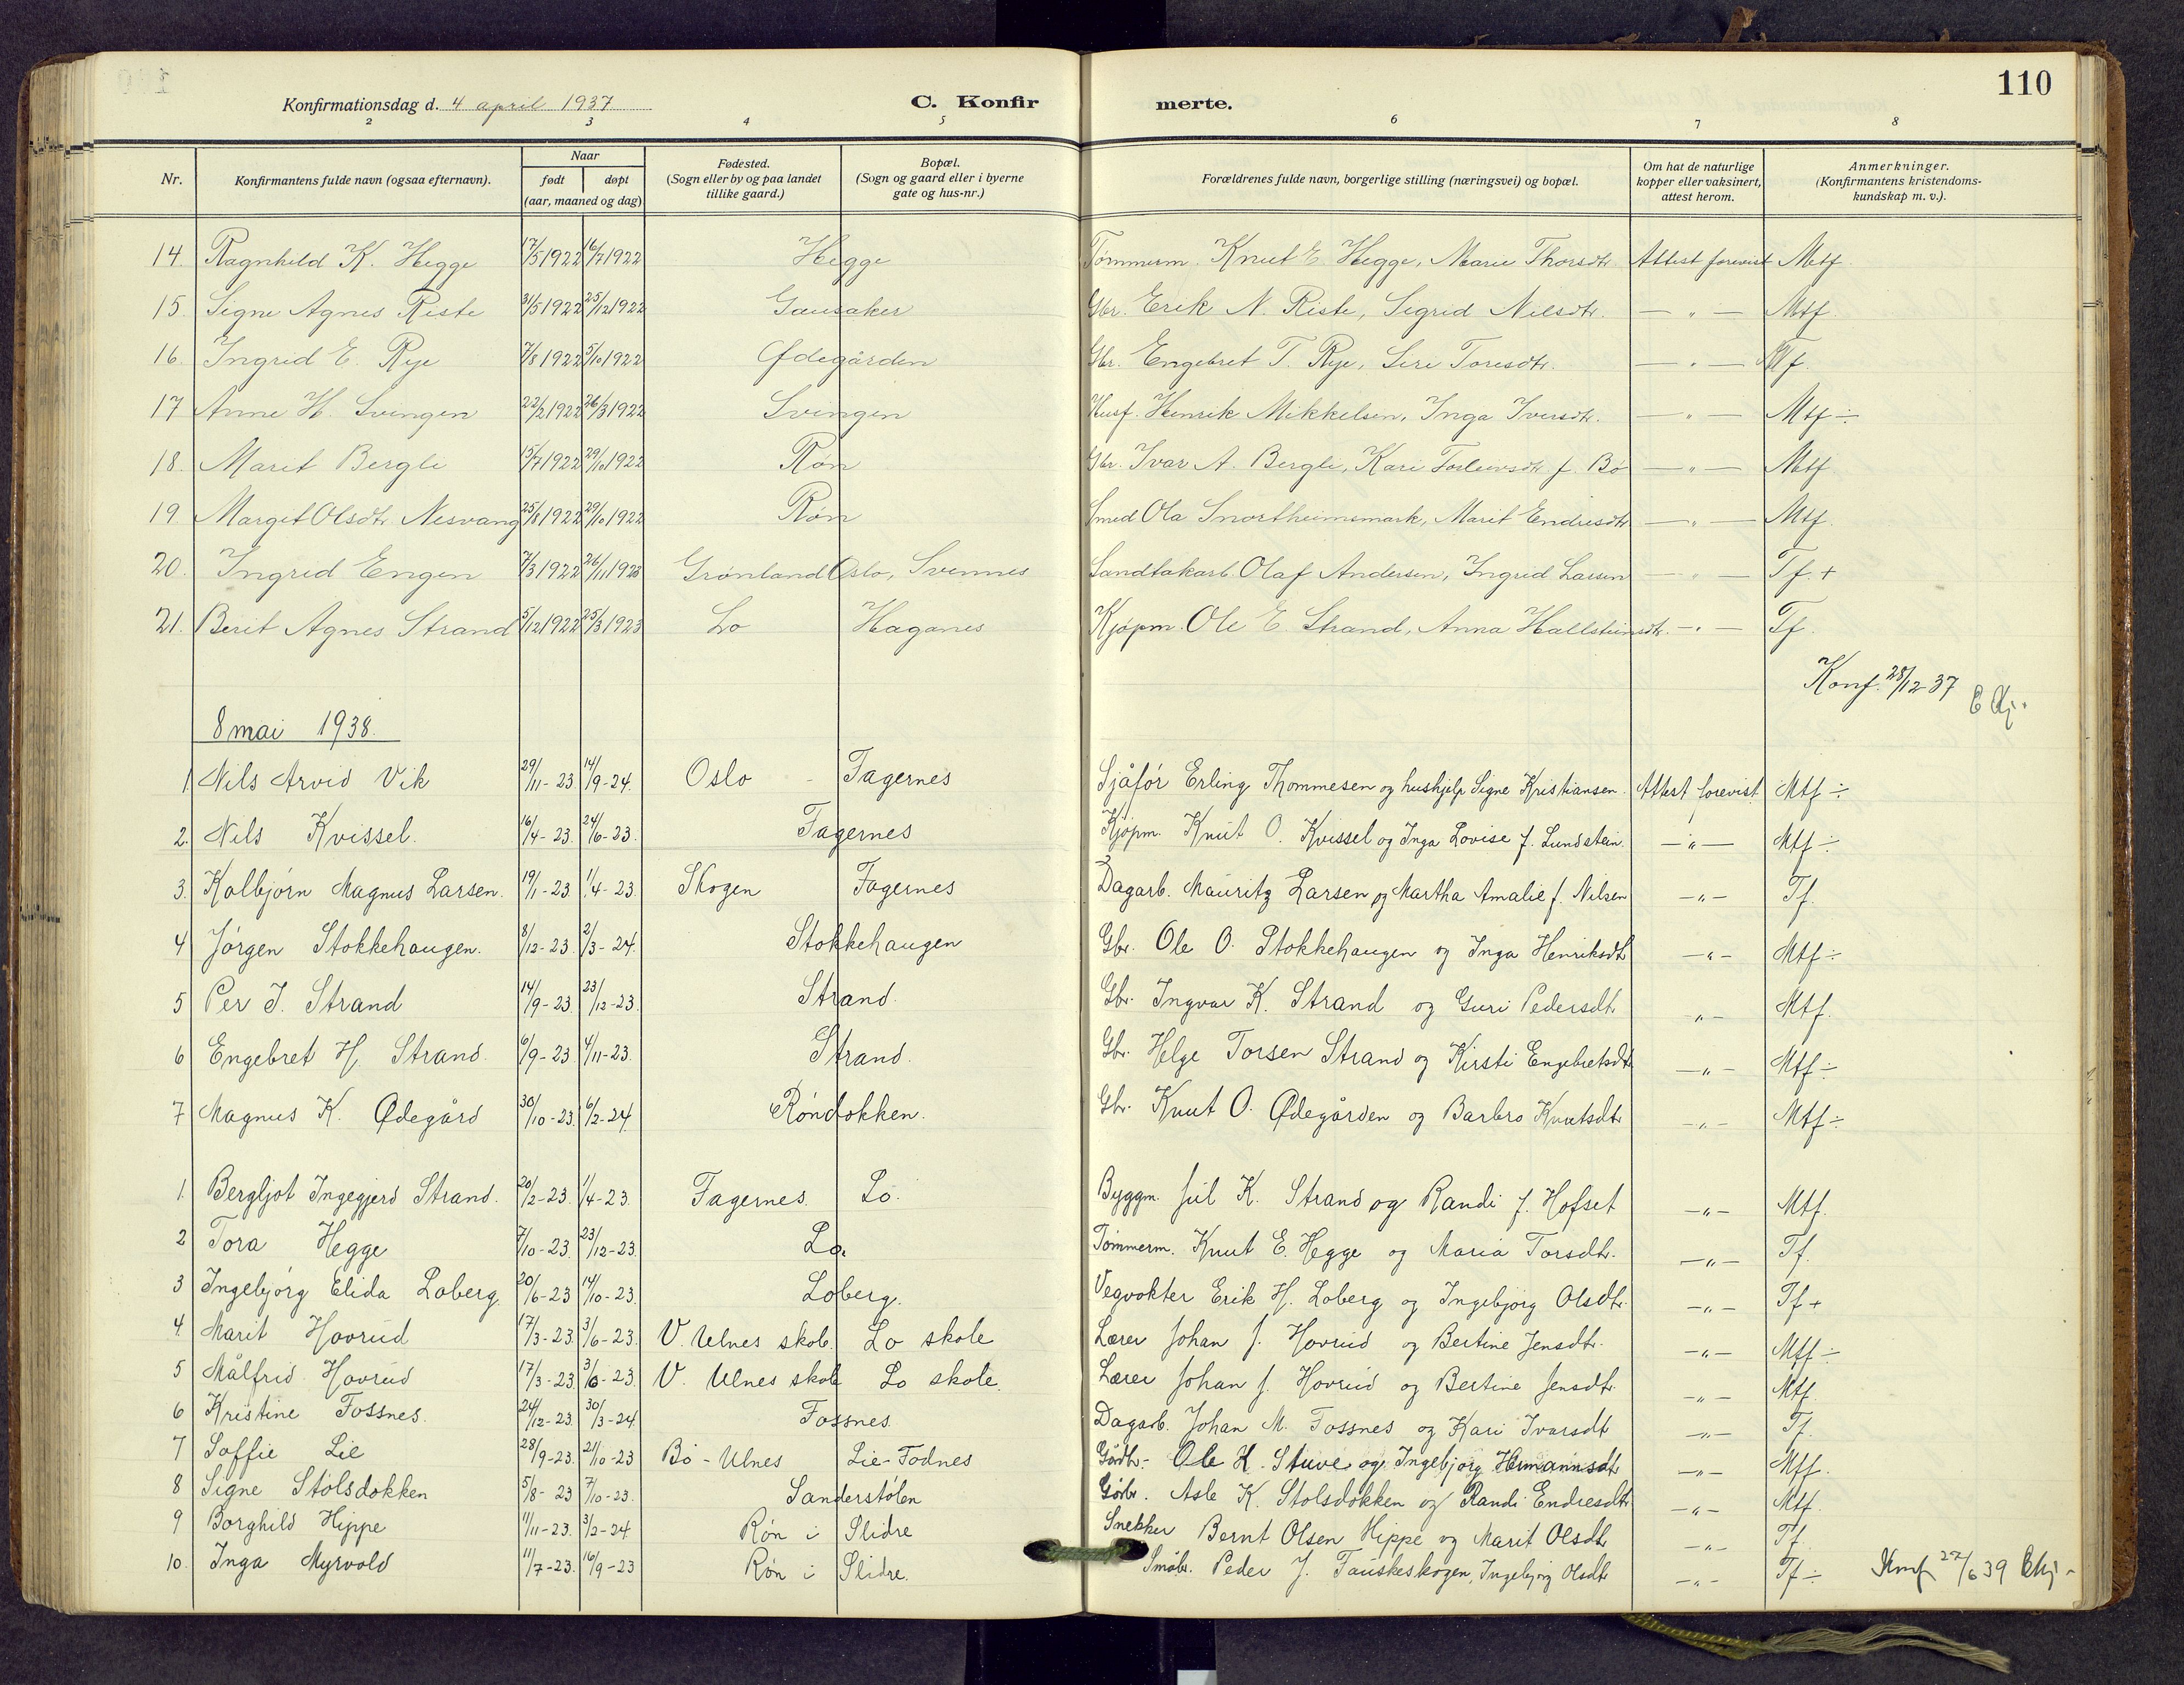 Konfirmationsdag d. 4 april 1937
C. Konfirmerte.
110
2 3 4 5 6 7 8
Nr.
Konfirmantens fulde navn (ogsaa efternavn).
Naar
født døpt
(aar, maaned og dag)
Fødested.
(Sogn eller by og paa landet
tillike gaard.)
Bopæl.
(Sogn og gaard eller i byerne
gate og hus-nr.)
Forældrenes fulde navn, borgerlige stilling (næringsvei) og bopæl.
Om hat de naturlige
kopper eller vaksinert,
attest herom.
Anmerkninger.
(Konfirmantens kristendoms-
kundskap m. v.).
14. Ragnhild K. Hegge 17/5 1922 16/7 1922 Hegge Tømmerm. Knut E. Hegge, Marie Thorsdtr. Attest forevist Mtf.
15. Signe Agnes Riste 31/5 1922 25/12 1922 Gausaker Gbr. Erik N. Riste, Sigrid Nilsdtr. — " — Mtf.
16. Ingrid E. Rye 7/8 1922 5/10 1922 Ødegården Gbr. Engebret T. Rye, Siri Toresdtr. — " — Tf.
17 Anne H. Svingen 22/2 1922 26/3 1922 Svingen Husf. Henrik Mikkelsen, Inga Iversdtr. — " — Mtf ÷
18. Marit Bergli 15/7 1922 29/10 1922 Røn Gbr. Ivar A. Bergli, Kari Torleivsdtr. f. Bø — " — Mtf.
19. Margit Olsdtr. Nesvang 25/8 1922 29/10 1922 Røn Smed Ola Snortheimsmark, Marit Endresdtr — " — Mtf.
20. Ingrid Engen 7/3 1922 26/11 1923 Grønland Oslo, Svennes Sandtakarb. Olaf Andersen, Ingrid Larsen — " — Tf. +
21. Berit Agnes Strand 5/12 1922 25/3 1923 Lo Haganes Kjøpm. Ole E. Strand, Anna Hallsteinsdtr. — " — Tf.
Konf. 28/12 37
E Kj.
8 mai 1938.
1. Nils Arvid Vik 29/11-23 14/9-24. Oslo - Fagernes Sjåfør Erling Thommesen og hushjelp Signe Kristiansen. Attest forevist Mtf ÷
2. Nils Kvissel. 16/4-23. 24/6-23. Fagernes Kjøpm. Knut O. Kvissel og Inga Lovise f. Lundstein. — " — Mtf ÷
3. Kolbjørn Magnus Larsen. 19/1-23 1/4-23 Skogen Fagernes Dagarb. Mauritz Larsen og Martha Amalie f. Nilsen — " — Tf.
4 Jørgen Stokkehaugen. 8/12-23. 2/3-24. Stokkehaugen Gbr. Ole O. Stokkehaugen og Inga Henriksdtr — " — Mtf ÷
5 Per I. Strand 14/9-23. 23/12-23. Strand. Gbr. Ingvar K. Strand og Guri Pedersdtr. — " — Mtf.
6 Engebret H. Strand. 6/9-23. 4/11-23. Strand. Gbr. Helge Torsen Strand og Kirsti Engebretsdtr. — " — Mtf ÷
7 Magnus K. Ødegård 30/10-23. 6/2-24 Røndokken. Gbr. Knut O. Ødegården og Barbro Knutsdtr. — " — Mtf ÷
1. Bergljot Ingegjerd Strand. 20/2-23. 1/4-23. Fagernes. Lo. Byggm. Jul K. Strand og Randi f. Hofset — " — Mtf.
2 Tora Hegge 7/10-23. 23/12-23. Lo. Tømmerm. Knut E. Hegge og Maria Torsdtr. — " — Tf.
3 Ingebjørg Elida Loberg. 20/6-23 14/10-23. Loberg. Vegvokter Erik H. Loberg og Ingebjørg Olsdtr. — " — Tf +
4. Marit Hovrud 17/3-23 3/6-23. V. Ulnes skole. Lo skole Lærer Johan J. Hovrud og Bertine Jensdtr. — " — Mtf ÷
5 Målfrid Hovrud 17/3-23 3/6-23. V. Ulnes skole Lo skole. Lærer Johan J. Hovrud og Bertine Jensdtr. — " — Mtf.
6 Kristine Fossnes. 24/12-23. 30/3-24 Fossnes. Dagarb. Johan M. Fossnes og Kari Ivarsdtr — " — Tf.
7 Soffie Lie 28/9-23. 21/10-23 Bø - Ulnes Lie-Fodnes Gårdbr. Ole H. Stuve og Ingebjørg Hermannsdtr — " — Mtf.
8 Signe Stølsdokken 5/8-23 7/10-23. Sanderstølen Gårdbr. Asle K. Stølsdokken og Randi Endresdtr. — " — Mtf.
9 Borghild Hippe 11/11-23. 3/2-24 Røn i Slidre Snekker Bernt Olsen Hippe og Marit Olsdtr — " — Tf.
10. Inga Myrvold 11/7-23. 16/9-23 Røn i Slidre. Småbr. Peder J. Fauskeskogen, Ingebjørg Olsdtr — " — Tf ÷ Konf 27/6 39 EKj.